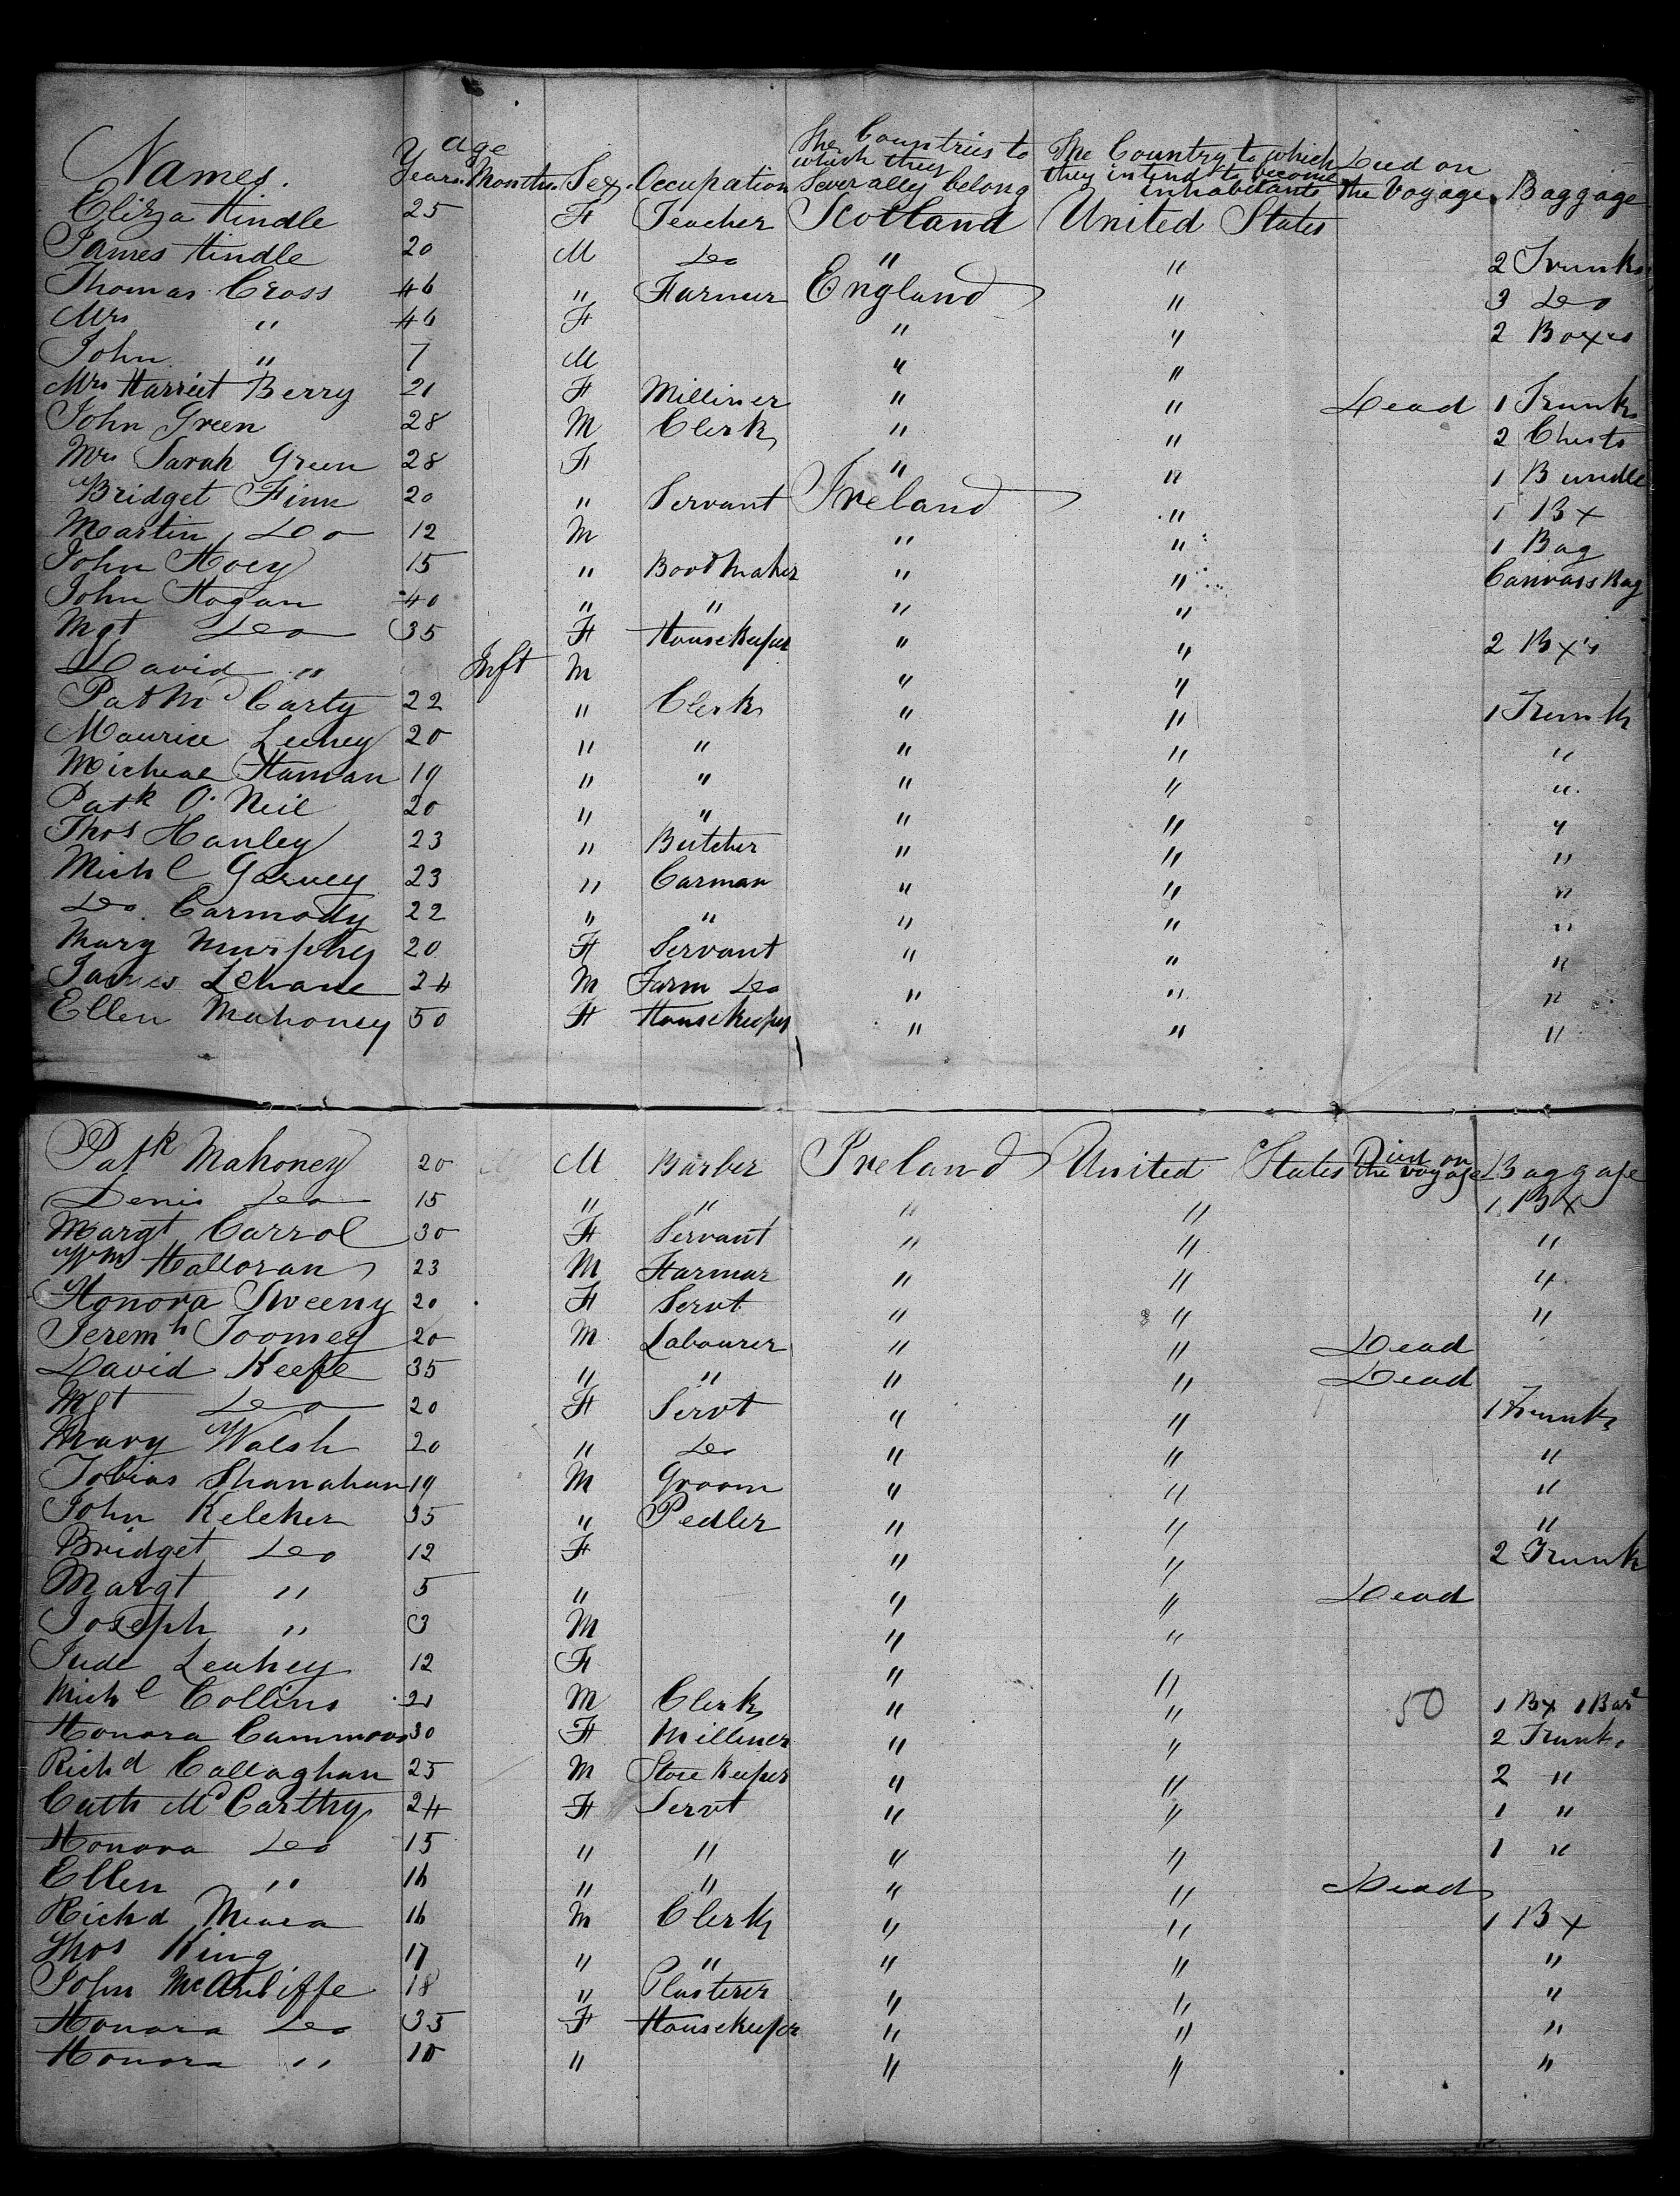 Names. age Years. Months. Sex. Occupation The Countries to which they Severally belong The Country to which they intend to become inhabitants Died on the Voyage. Baggage
Eliza Hindle 25 F Teacher Scotland United States
James Hindle 20 M Do " " 2 Trunks
Thomas Cross 46 " Farmer England " 3 Do
Mrs " 46 F " " 2 Boxes
John " 7 M " "
Mrs Harriet Berry 21 F Milliner " " Dead 1 Trunk
John Green 28 M Clerk " " 2 Chests
Mrs Sarah Green 28 F " " 1 Bundle
Bridget Finn 20 " Servant Ireland " 1 Bx
Martin Do 12 M " " 1 Bag
John Hoey 15 " Boot Maker " " Canvass Bag
John Hogan 40 " " " "
Mgt Do 35 F House Keeper " " 2 Bx's
David " Inft M " "
Pat Mc Carty 22 " Clerk " " 1 Trunk
Maurice Leehey 20 " " " " "
Micheal Hannan 19 " " " " "
Patk O'Neil 20 " " " " "
Thos Hanley 23 " Butcher " " "
Michl Garvey 23 " Carman " " "
Do Carmody 22 " " " " "
Mary Murphy 20 F Servant " " "
James Lehane 24 M Farm Do " " "
Ellen Mahoney 50 F House Keeper " " "
Patk Mahoney 20 M Barber Ireland United States Died on the voyage Baggage
Denis Do 15 " " " " 1 Bx
Margt Carrol 30 F Servant " " "
Wm Halloran 23 M Farmar " " "
Honora Sweeny 20 F Servt " " "
Jeremh Toomey 20 M Labourer " " Dead
David Keefe 35 " " " " Dead
Mgt Do 20 F Servt " " 1 Trunk
Mary Walsh 20 " Do " " "
Tobias Shanahan 19 M Groom " " "
John Keleher 35 " Pedler " " "
Bridget Do 12 F " " 2 Trunk
Margt " 5 " " " Dead
Joseph " 3 M " "
Jude Leahey 12 F " "
Michl Collins 21 M Clerk " " 50 1 Bx 1 Barl
Honora Cammoon 30 F Milliner " " 2 Trunks
Richd Callaghan 25 M Store Keeper " " 2 "
Cath McCarthy 24 F Servt " " 1 "
Honora Do 15 " " " " 1 "
Ellen " 16 " " " " Dead
Richd Meara 16 M Clerk " " 1 Bx
Thos King 17 " " " " "
John McAuliffe 18 " Plasterer " " "
Honora Do 35 F House Keeper " " "
Honora " 10 " " " "